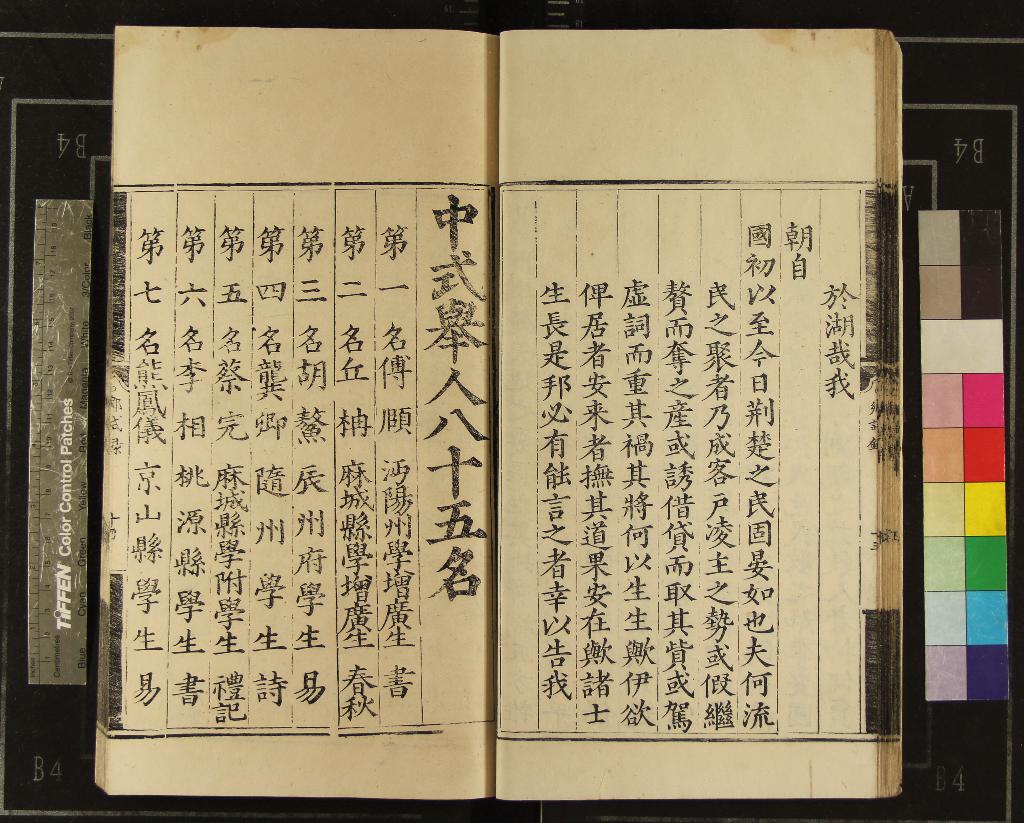 於湖哉我
朝自
國初以至今日荆楚之民固晏如也夫何流
民之聚者乃成客戶凌主之勢或假繼
贅而奪之產或誘借貸而取其貲或駕
虛詞而重其禍其將何以生生歟伊欲
俾居者安来者撫其道果安在歟諸士
生長是邦必有能言之者幸以告我
中式舉人八十五名
第一名傅頤 沔陽州學增廣生 書
第二名丘柟 麻城縣學增廣生 春秋
第三名胡鰲 辰州府學生 易
第四名龔卿 隨州學生 詩
第五名蔡完 麻城縣學附學生 禮記
第六名李相 桃源縣學生 書
第七名熊鳳儀 京山縣學生 易
TIFFEN Color Control Patches
Blue
Cyan
Green
Yellow
Red
Magenta
White
3/Color
Black
Centimetres
Inches
B4
B4
B4
B4